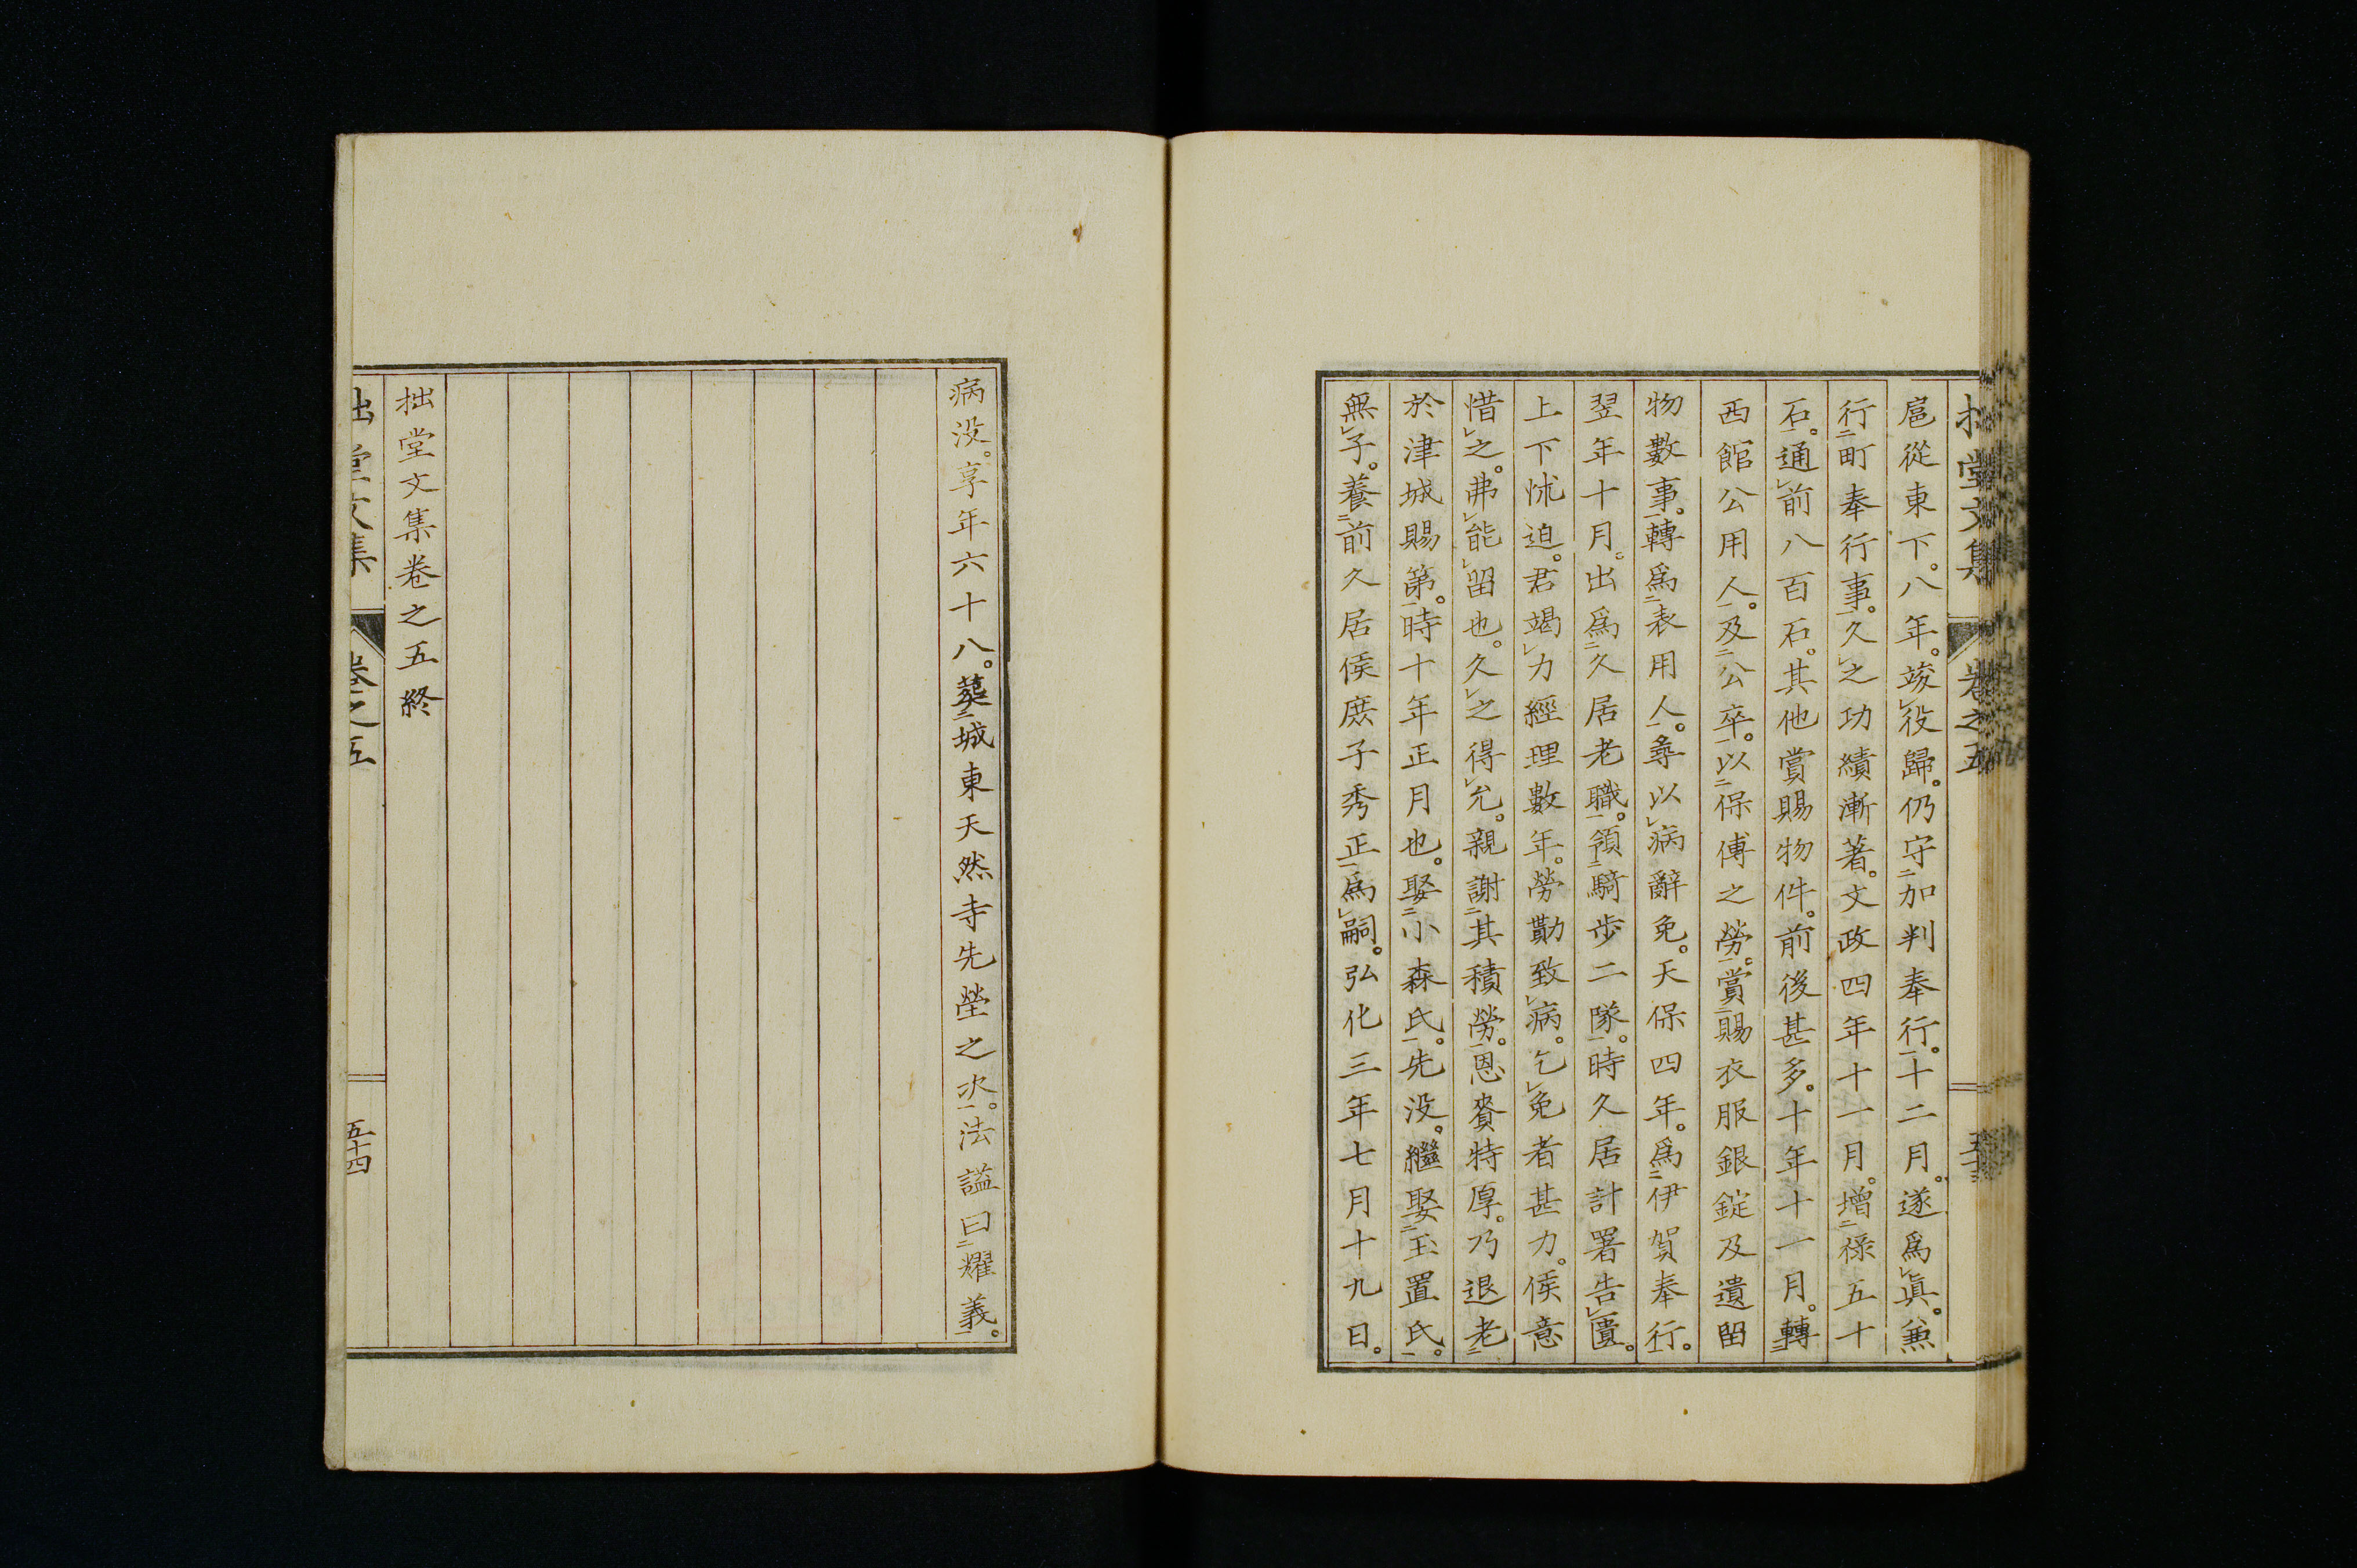 扈從東下。八年。竣役歸。仍守加判奉行。十二月。遂爲眞。兼
行町奉行事。久之功績漸著。文政四年十一月。增祿五十
石。通前八百石。其他賞賜物件。前後甚多。十年十一月。轉
西館公用人。及公卒。以保傅之勞。賞賜衣服銀錠及遺留
物數事。轉爲表用人。尋以病辭免。天保四年。爲伊賀奉行。
翌年十月。出爲久居老職。領騎步二隊。時久居計署告匱。
上下怵迫。君竭力經理數年。勞勩致病。乞免者甚力。侯意
惜之。弗能留也。久之得允。親謝其積勞。恩賚特厚。乃退老
於津城賜第。時十年正月也。娶小森氏。先没。繼娶玉置氏。
無子。養前久居侯庶子秀正爲嗣。弘化三年七月十九日。
病没。享年六十八。葬城東天然寺先塋之次。法謚曰耀義。
拙堂文集卷之五終
拙堂文集 卷之五 五十四